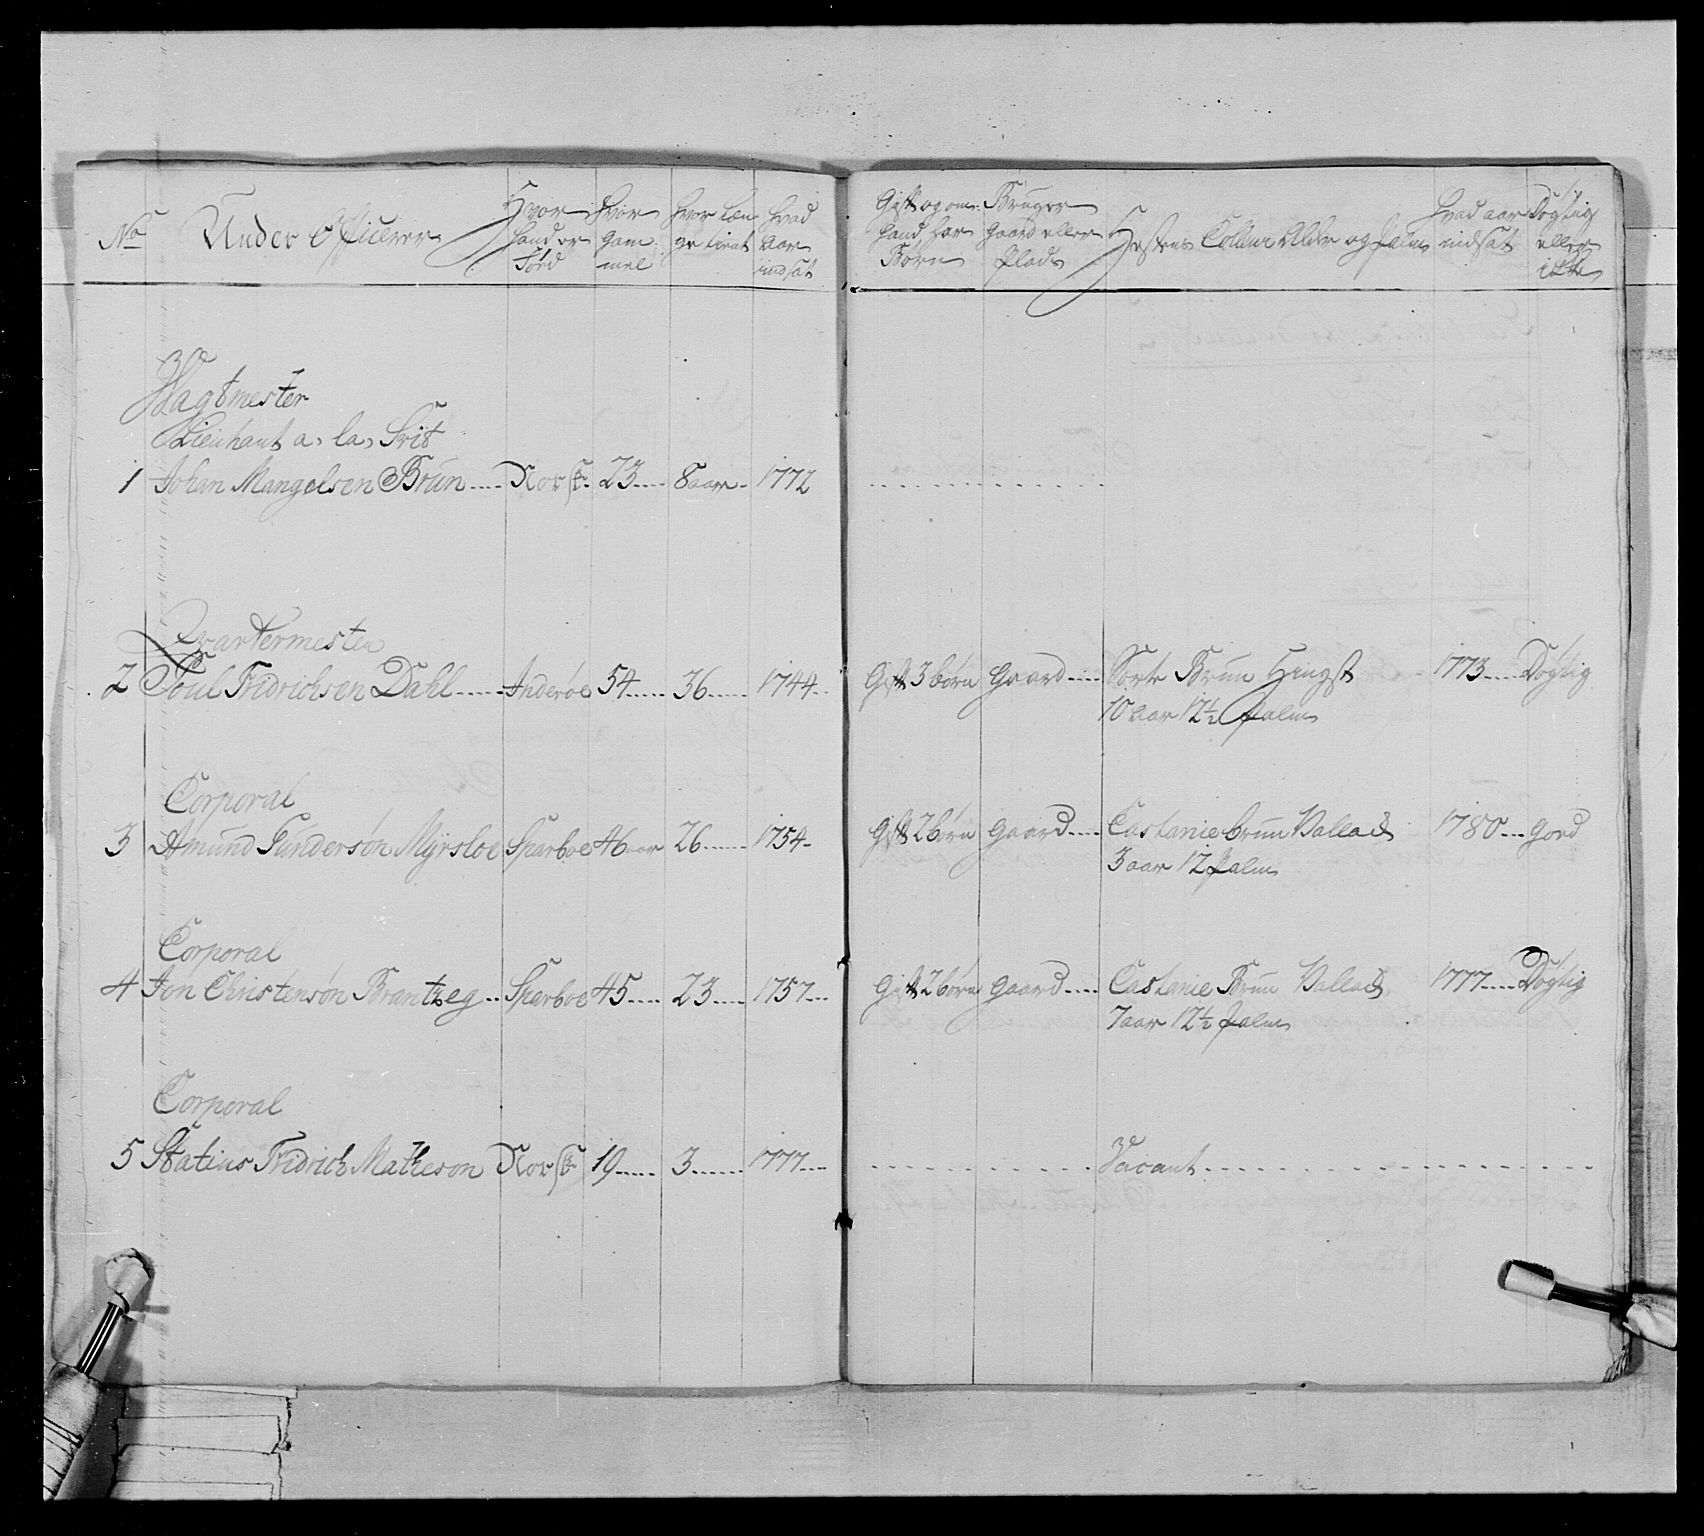 No
Under Officerer
Hvor hand er Förd
Hvor Gam: mel
hvor læn ge tient
hvad aar indsat
Gift og om hand har Börn
Bruger gaard eller Plads
Hestens Colleur Alder og Palm
hvad aar indsat
Dögtig eller ikke
Wagtmester
Lieutnant a. la. Svit
1 Johan Mangelsen Brun .... Norsk. 23 .... 8 aar. 1772
Qvartermester
2 Poul Fridrichsen Dahl ..... Inderöe 54 ..... 36 ..... 1744 .. Gift 3 börn gaard .... Sorte Brun Hingst 1773 .... Dögtig
10 aar 12½ Palm
Corporal
3 Amund Gundersön Myrsloe Sparboe 46 aar 26 ..... 1754. Gift 2 börn gaard .... Castaniebrun Vallack 1780 ... goed
3 aar 12 Palm
Corporal
4 Jon Christensön Brantzeg .. Sparboe 45 .... 23 .... 1757 ... Gift 2 börn gaard .... Castanie Brun Vallack 1777 .... Dögtig
7 aar 12½ Palm
Corporal
5 Statius Fridrich Matheson Norsk 19 ..... 3 ...... 1777 ... Vacant